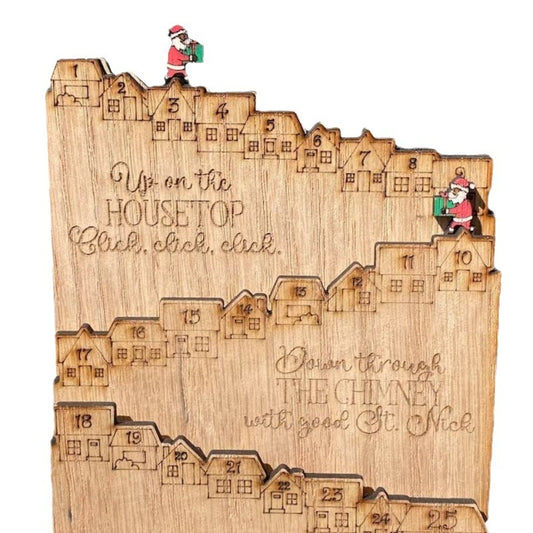 1 2 3 4 5 6 7 8 9
Up on the
HOUSETOP
Click, click, click.
17 16 15 14 13 12 11 10
Down through
THE CHIMNEY
with good St. Nick
18 19 20 21 22 23 24 25